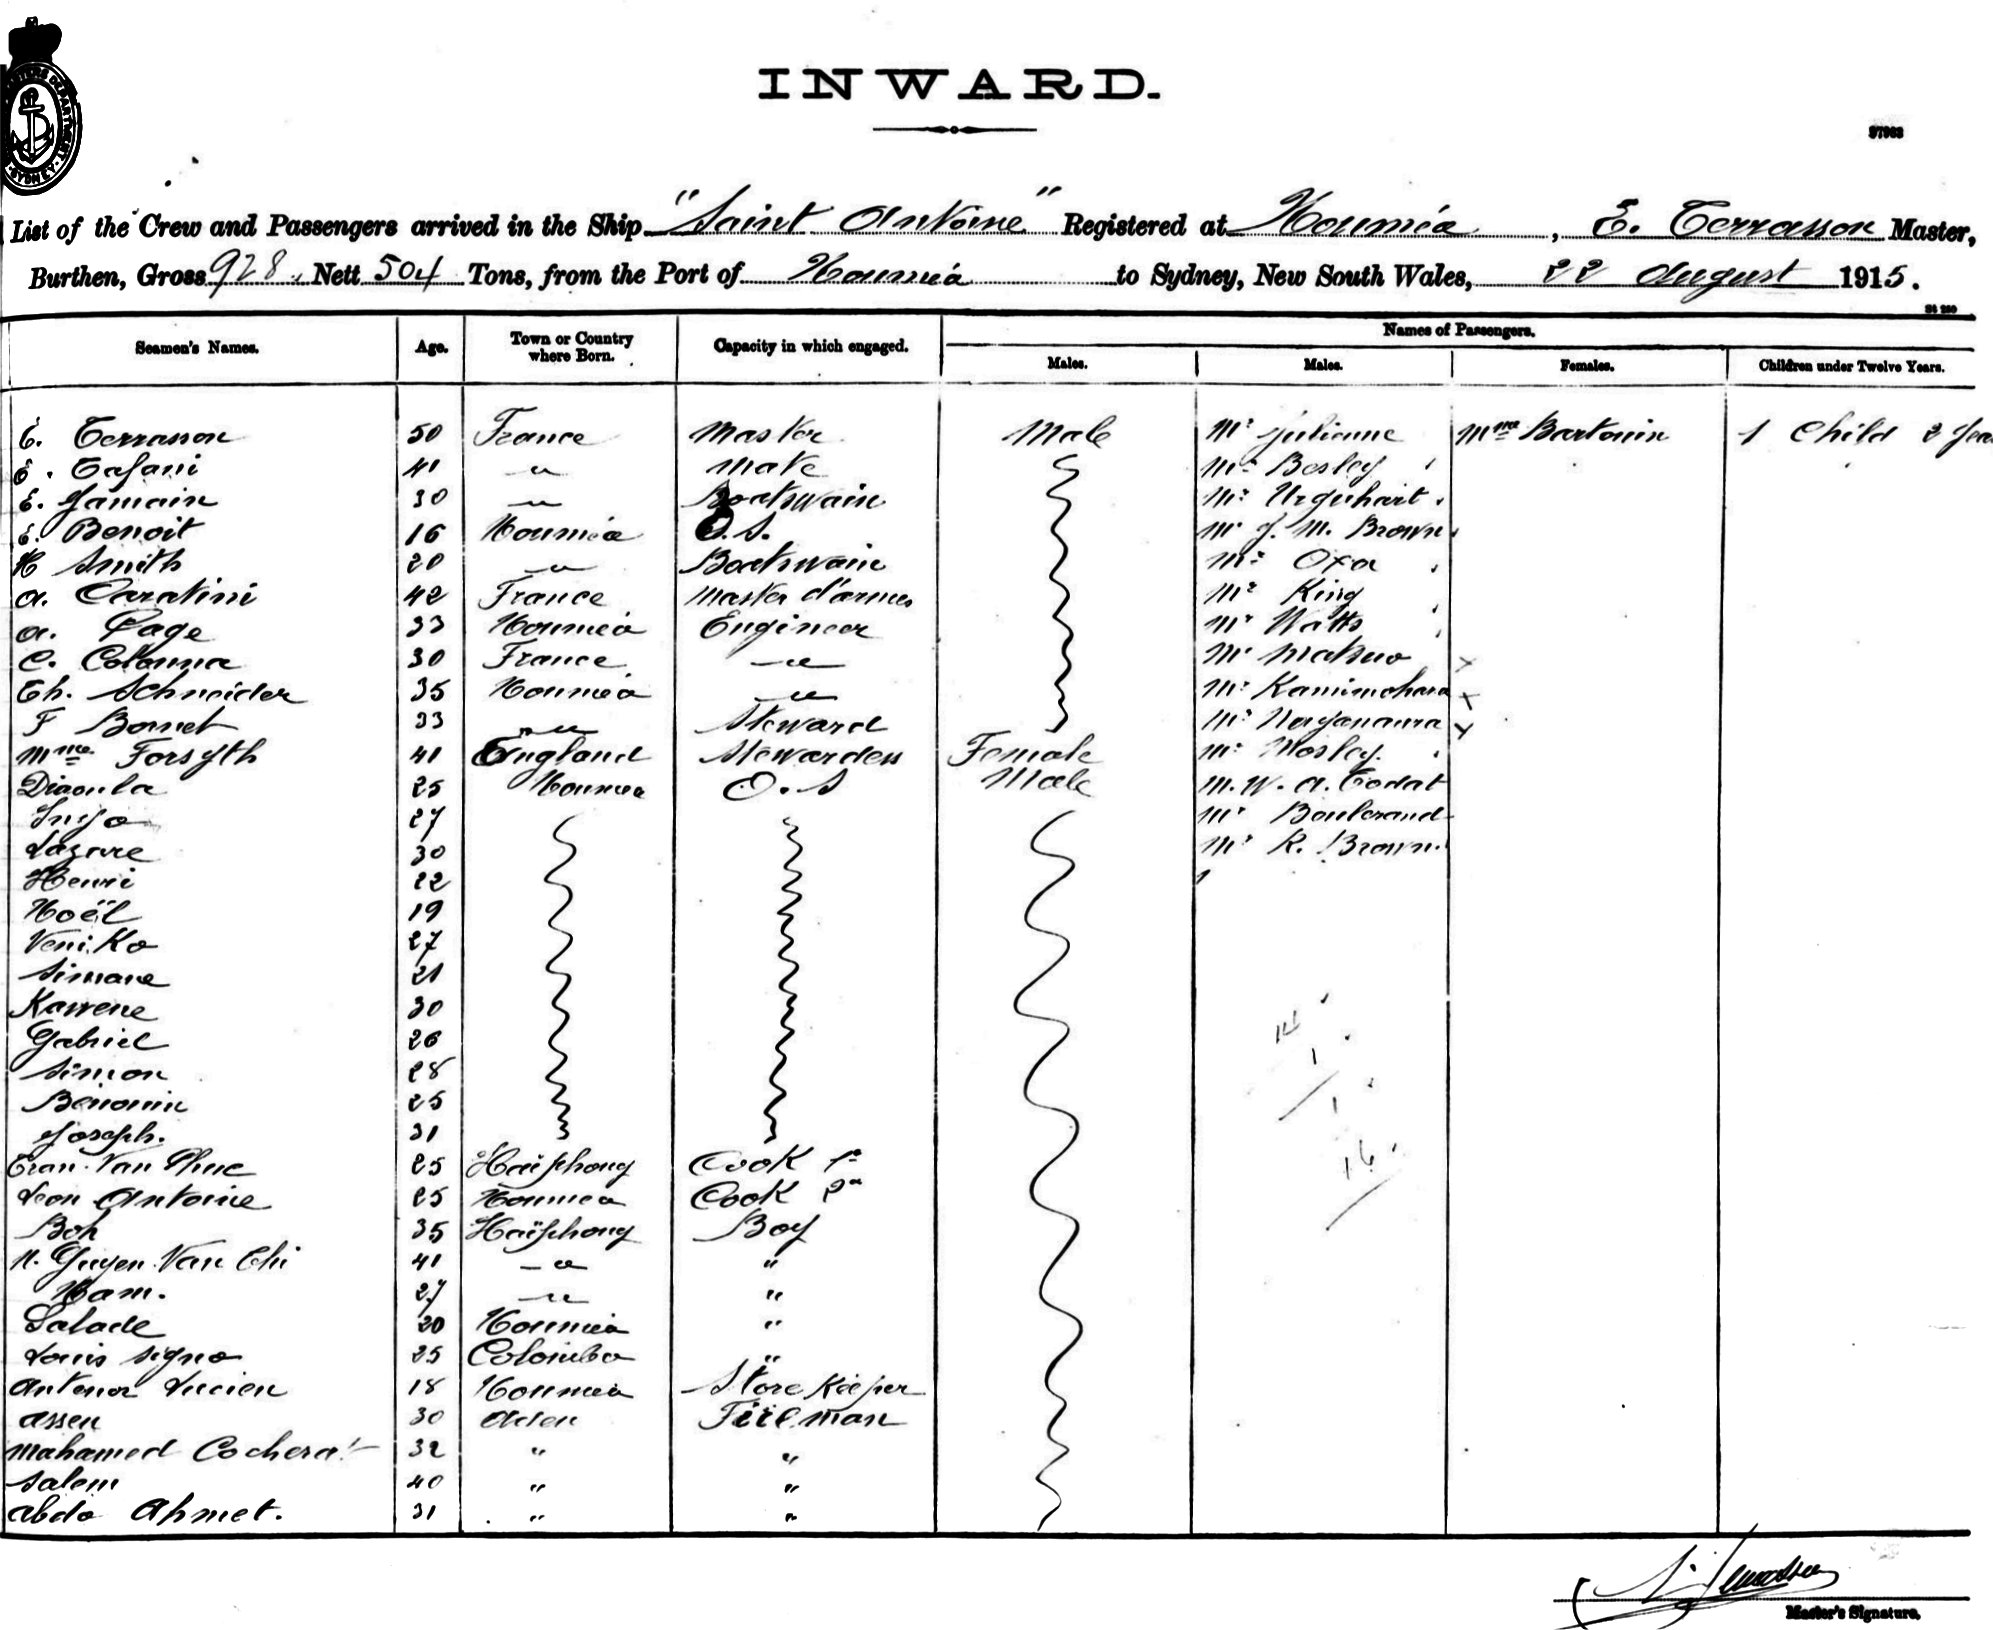 INWARD.
37963
List of the Crew and Passengers arrived in the Ship "Saint Antoine" Registered at Nouméa, E. Terrasson Master,
Burthen, Gross 928, Nett 504 Tons, from the Port of Nouméa to Sydney, New South Wales, 22 August 1915.
Seamen's Names. Age. Town or Country where Born. Capacity in which engaged. Names of Passengers.
Males. Males. Females. Children under Twelve Years.
E. Terrasson 50 France Master Male Mr Julienne Mme Bartouin 1 Child 2 Yea
E. Tafani 41 " Mate Mr Besley
E. Jamain 30 " Boatswain Mr Urquhart
E. Benoit 16 Nouméa O.S. Mr J. M. Brown
H Smith 20 " Boatswain Mr Oxa
A. Caratini 42 France Master d'armes Mr King
A. Page 33 Nouméa Engineer Mr Watts
C. Colonna 30 France " Mr Matsuo x
Th. Schneider 35 Nouméa " Mr Kamimohara x
F Bonnet 33 " Steward Mr Nagamura x
Mme Forsyth 41 England Stewardess Female Mr Mosley.
Diaoula 25 Nouméa O.S Male M. W. A. Todat
27 Mr Boulerand
Lazare 30 Mr R. Brown.
Henri 22
Noël 19
Veni Ko 27
Simane 21
Kawene 30
Gabriel 26 14
Simon 28 1
Benonin 25 1
Joseph. 31
Tran Van Phuc 25 Haïphong Cook 1st 16
Leon Antoine 25 Nouméa Cook 2nd
Boh 35 Haïphong Boy
N. Guyen Van Chi 41 " "
Nam. 27 " "
Salade 20 Nouméa "
Louis Signo 25 Colombo "
Antenor Lucien 18 Nouméa Store Keeper
Assen 30 Aden Fireman
Mahamed 32 " "
Salem 40 " "
Abdo Ahmet. 31 " "
Master's Signature.